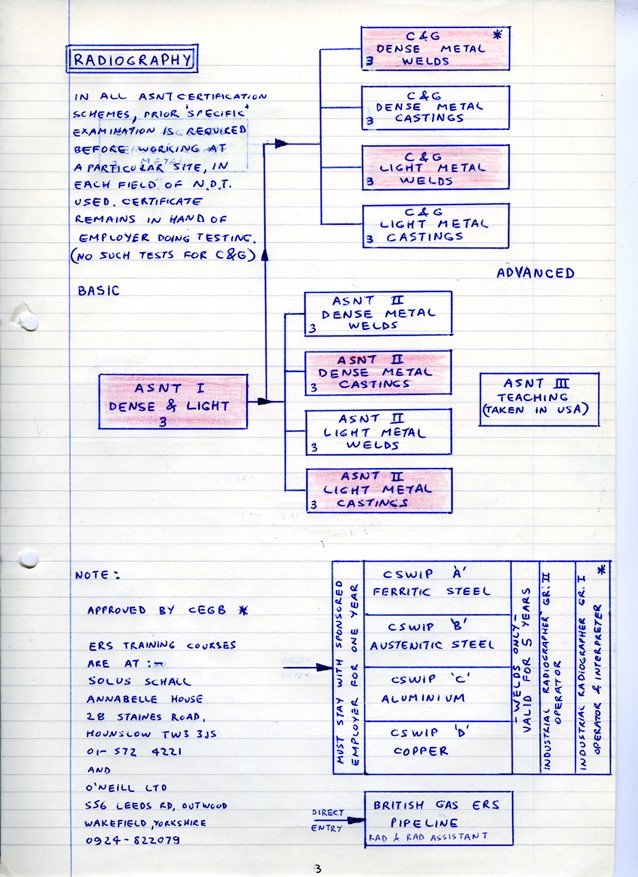 RADIOGRAPHY
IN ALL ASNT CERTIFICATION
SCHEMES, PRIOR 'SPECIFIC'
EXAMINATION IS REQUIRED
BEFORE WORKING AT
A PARTICULAR SITE, IN
EACH FIELD OF N.D.T.
USED. CERTIFICATE
REMAINS IN HAND OF
EMPLOYER DOING TESTING.
(NO SUCH TESTS FOR C&G)
BASIC
C&G *
DENSE METAL
3 WELDS
C&G
DENSE METAL
3 CASTINGS
C&G
LIGHT METAL
3 WELDS
C&G
LIGHT METAL
3 CASTINGS
ADVANCED
ASNT I
DENSE & LIGHT
3
ASNT II
DENSE METAL
3 WELDS
ASNT II
DENSE METAL
3 CASTINGS
ASNT II
LIGHT METAL
3 WELDS
ASNT II
LIGHT METAL
3 CASTINGS
ASNT III
TEACHING
(TAKEN IN USA)
NOTE:
APPROVED BY CEGB *
ERS TRAINING COURSES
ARE AT :-
SOLUS SCHALL
ANNABELLE HOUSE
28 STAINES ROAD,
HOUNSLOW TW3 3JS
01- 572 4221
AND
O'NEILL LTD
556 LEEDS RD, OUTWOOD
WAKEFIELD, YORKSHIRE
0924-822079
MUST STAY WITH SPONSORED
EMPLOYER FOR ONE YEAR
CSWIP 'A'
FERRITIC STEEL
CSWIP 'B'
AUSTENITIC STEEL
CSWIP 'C'
ALUMINIUM
CSWIP 'D'
COPPER
-WELDS ONLY-
VALID FOR 5 YEARS
INDUSTRIAL RADIOGRAPHER GR. II
OPERATOR
INDUSTRIAL RADIOGRAPHER GR. I
OPERATOR & INTERPRETER *
DIRECT
ENTRY
BRITISH GAS ERS
PIPELINE
RAD & RAD ASSISTANT
3